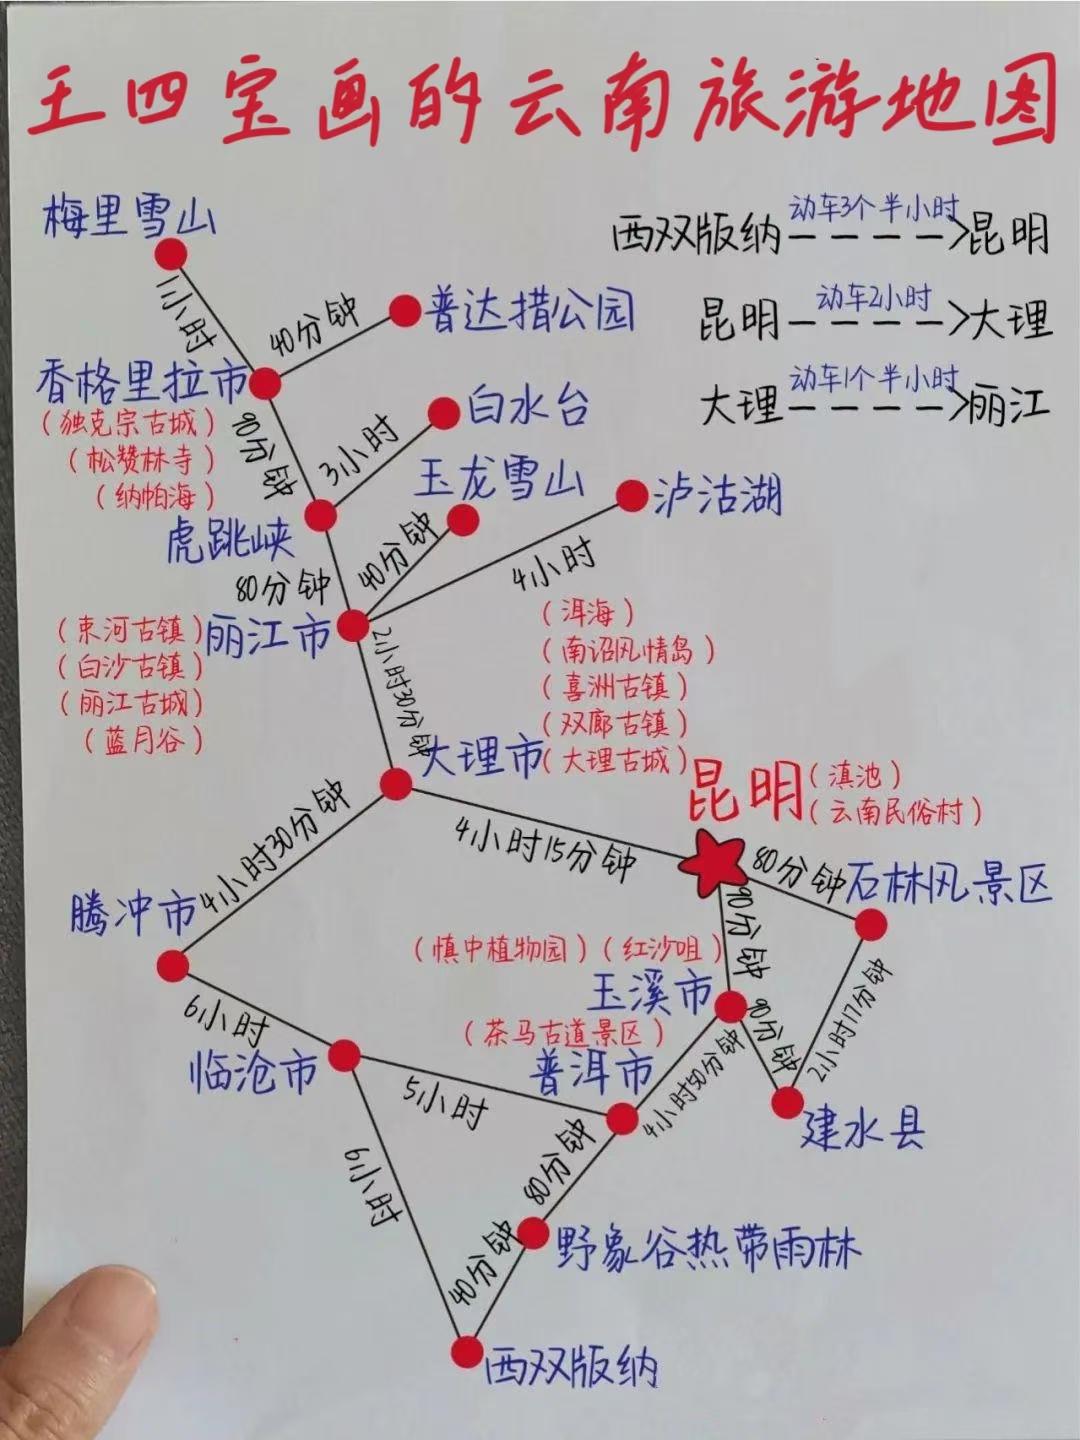 王四宝画的云南旅游地图
梅里雪山
西双版纳 动车3个半小时 昆明
昆明 动车2小时 大理
大理 动车1个半小时 丽江
1小时
40分钟
普达措公园
香格里拉市
(独克宗古城)
(松赞林寺)
(纳帕海)
90分钟
3小时
白水台
虎跳峡
玉龙雪山
泸沽湖
80分钟
40分钟
4小时
丽江市
(束河古镇)
(白沙古镇)
(丽江古城)
(蓝月谷)
2小时30分钟
(洱海)
(南诏风情岛)
(喜洲古镇)
(双廊古镇)
(大理古城)
大理市
昆明
(滇池)
(云南民俗村)
4小时30分钟
4小时15分钟
80分钟
石林风景区
腾冲市
90分钟
(慎中植物园)(红沙咀)
玉溪市
6小时
(茶马古道景区)
90分钟
2小时17分钟
临沧市
普洱市
5小时
4小时50分钟
建水县
6小时
80分钟
野象谷热带雨林
40分钟
西双版纳